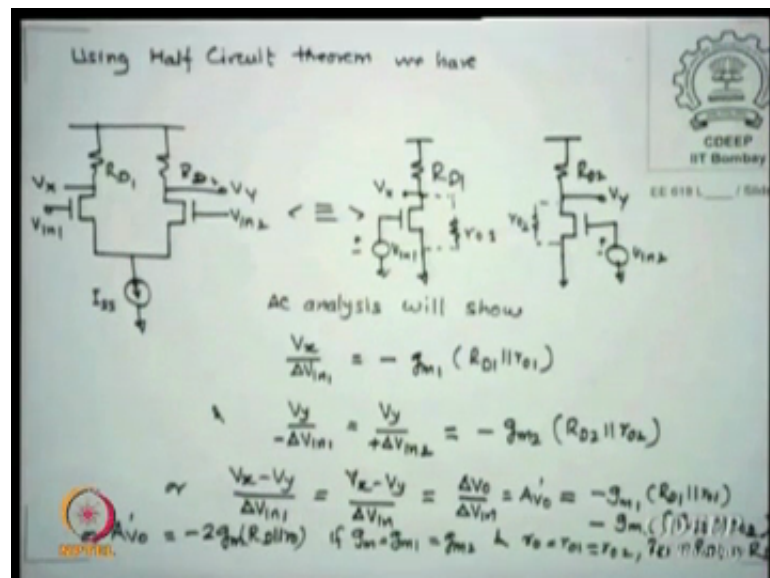 Using Half Circuit theorem we have
CDEEP
IIT Bombay
EE 619 L____ / Slide
R_D1
R_D2
V_x
V_y
V_in1
V_in2
I_SS
< ≡ >
R_D1
V_x
r_01
V_in1
R_D2
V_y
r_02
V_in2
AC analysis will show
V_x/ΔV_in1 = - g_m1 (R_D1 || r_01)
& V_y/-ΔV_in1 = V_y/+ΔV_in2 = - g_m2 (R_D2 || r_02)
or V_x-V_y/ΔV_in1 = V_x-V_y/ΔV_in = ΔV_0/ΔV_in = A'_V0 = -g_m1 (R_D1 || r_01)
- g_m
A'_V0 = -2g_m(R_D || r_0) if g_m = g_m1 = g_m2 & r_0 = r_01 = r_02,
NPTEL